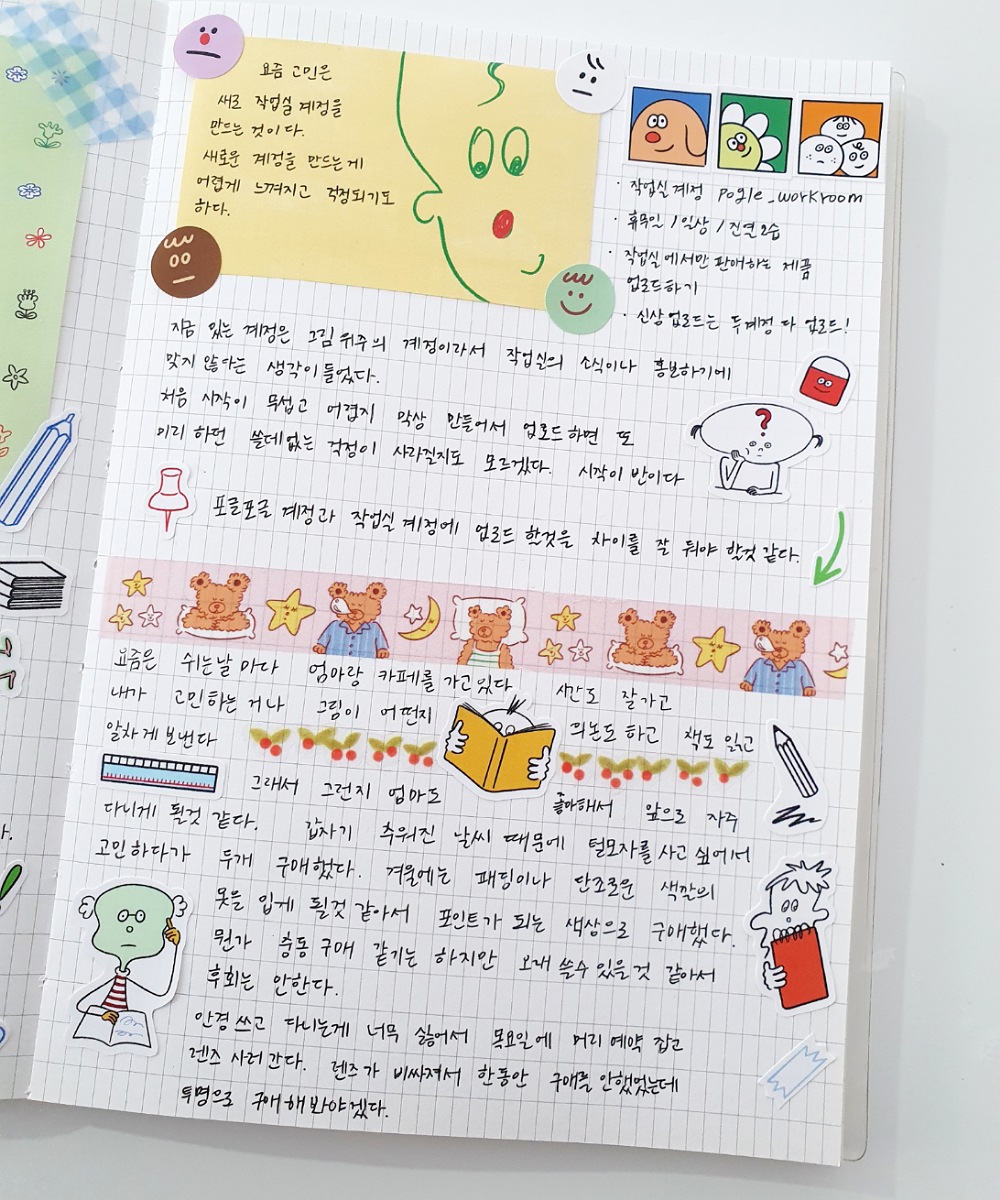 요즘 고민은
새로 작업실 계정을
만드는 것이다.
새로운 계정을 만드는게
어렵게 느껴지고 걱정되기도
하다.
· 작업실 계정 pogle_workroom
· 휴무일 / 일상 / 진열모습
· 작업실에서만 판매하는 제품
업로드하기
· 신상업로드는 두계정 다 업로드!
지금 있는 계정은 그림위주의 계정이라서 작업실의 소식이나 홍보하기에
맞지 않다는 생각이 들었다.
처음 시작이 무섭고 어렵지 막상 만들어서 업로드하면 또
미리 하던 쓸데없는 걱정이 사라질지도 모르겠다. 시작이 반이다
?
포글포글 계정과 작업실 계정에 업로드 할것을 차이를 잘 둬야 할것 같다.
요즘은 쉬는날 마다 엄마랑 카페를 가고있다 시간도 잘가고
내가 고민하는 거나 그림이 어떤지 의논도 하고 책도 읽고
알차게 보낸다
그래서 그런지 엄마도 좋아해서 앞으로 자주
다니게 될것 같다. 갑자기 추워진 날씨 때문에 털모자를 사고 싶어서
고민하다가 두개 구매했다. 겨울에는 패딩이나 단조로운 색깔의
옷을 입게 될것 같아서 포인트가 되는 색상으로 구매했다.
뭔가 충동구매 같기는 하지만 오래 쓸수 있을것 같아서
후회는 안한다.
안경쓰고 다니는게 너무 싫어서 목요일에 머리 예약 잡고
렌즈 사러 간다. 렌즈가 비싸져서 한동안 구매를 안했었는데
투명으로 구매해봐야겠다.